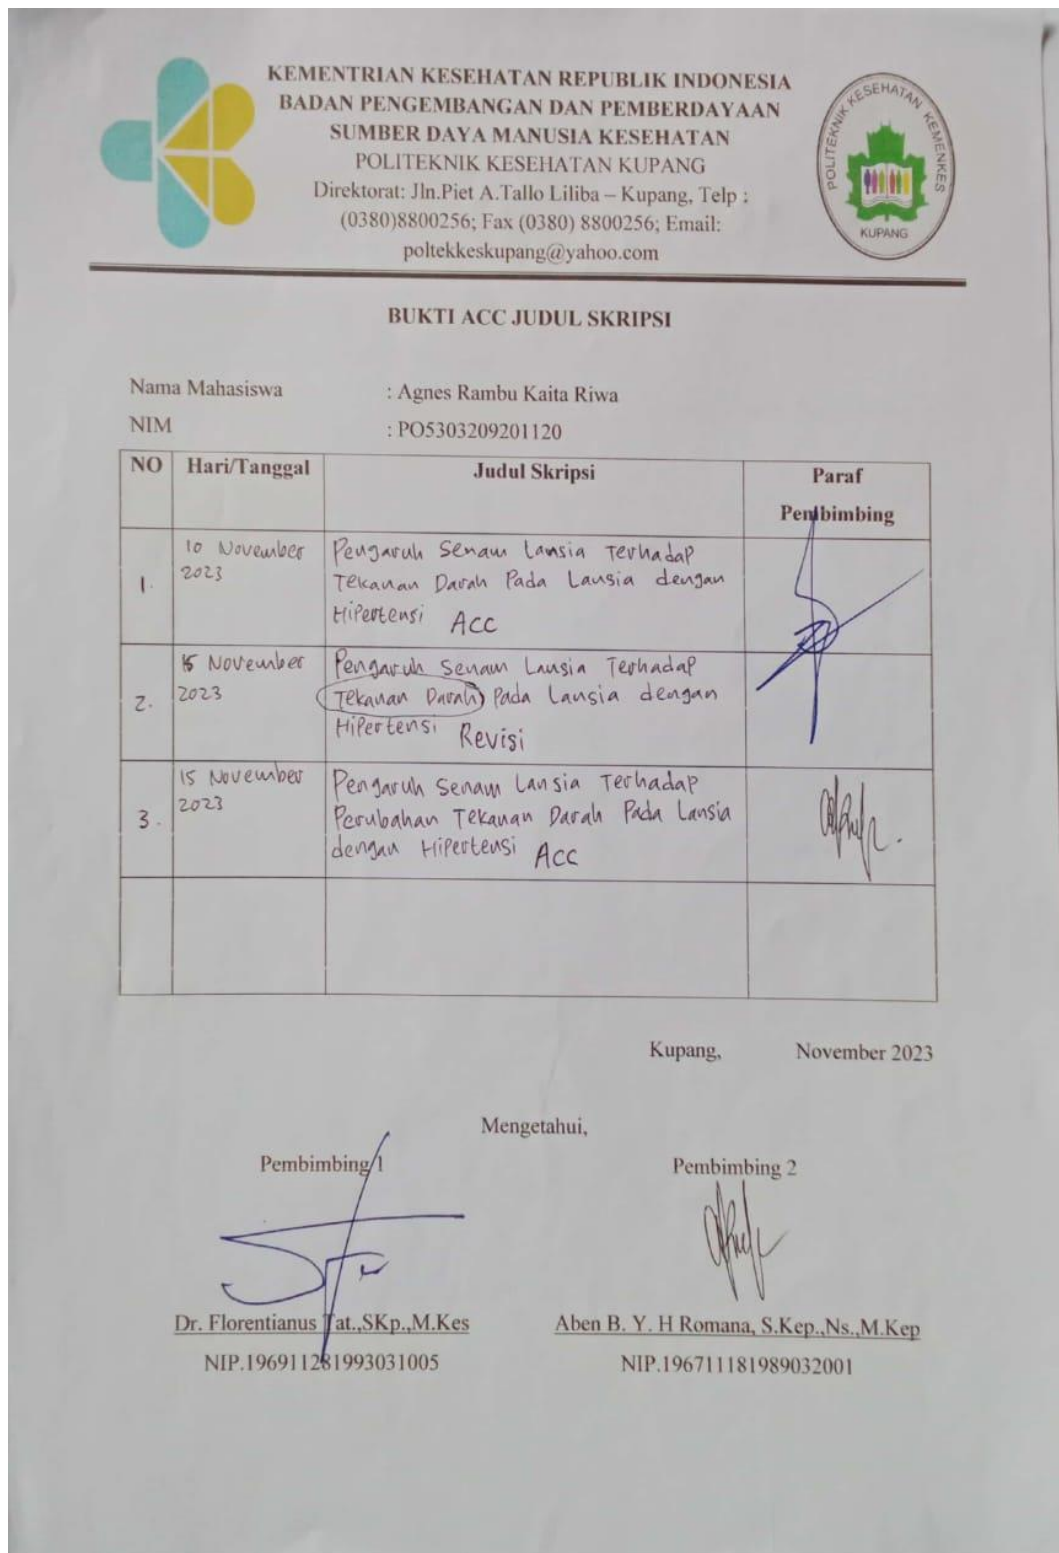 KEMENTRIAN KESEHATAN REPUBLIK INDONESIA
BADAN PENGEMBANGAN DAN PEMBERDAYAAN
SUMBER DAYA MANUSIA KESEHATAN
POLITEKNIK KESEHATAN KUPANG
Direktorat: Jln.Piet A.Tallo Liliba – Kupang, Telp :
(0380)8800256; Fax (0380) 8800256; Email:
poltekkeskupang@yahoo.com
POLITEKNIK KESEHATAN KEMENKES
KUPANG
BUKTI ACC JUDUL SKRIPSI
Nama Mahasiswa : Agnes Rambu Kaita Riwa
NIM : PO5303209201120
NO Hari/Tanggal Judul Skripsi Paraf
Pembimbing
10 November Pengaruh Senam Lansia Terhadap
1. 2023 Tekanan Darah Pada Lansia dengan
Hipertensi ACC
15 November Pengaruh Senam Lansia Terhadap
2. 2023 Tekanan Darah Pada Lansia dengan
Hipertensi Revisi
15 November Pengaruh Senam Lansia Terhadap
3. 2023 Perubahan Tekanan Darah Pada Lansia
dengan Hipertensi ACC
Kupang, November 2023
Mengetahui,
Pembimbing 1 Pembimbing 2
Dr. Florentianus Tat.,SKp.,M.Kes Aben B. Y. H Romana, S.Kep.,Ns.,M.Kep
NIP.196911281993031005 NIP.196711181989032001